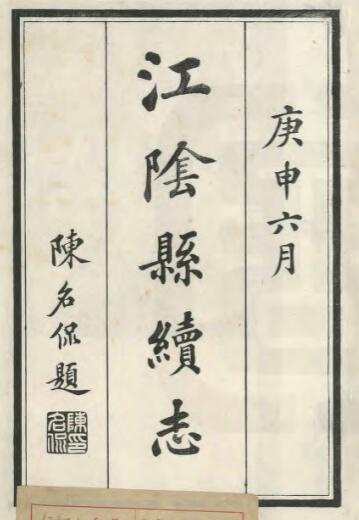 庚申六月
江陰縣續志
陳名侃題
陳印
名侃